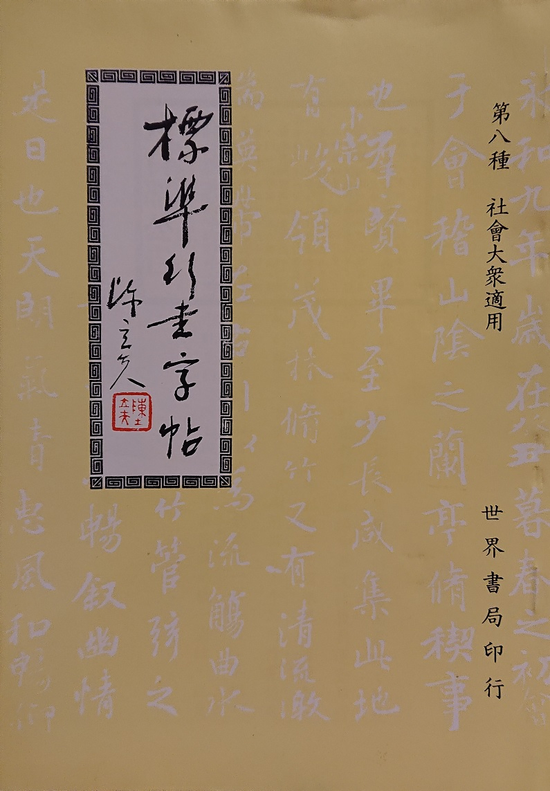 第八種　社會大衆適用
世界書局印行
標準行書字帖
陳立夫
陳立夫
永和九年歲在癸丑暮春之初會
于會稽山陰之蘭亭脩稧事
也羣賢畢至少長咸集此地
崇山
有峻領茂林脩竹又有清流激
湍暎帶左右引以為流觴曲水
竹管弦之
暢叙幽情
是日也天朗氣清惠風和暢仰